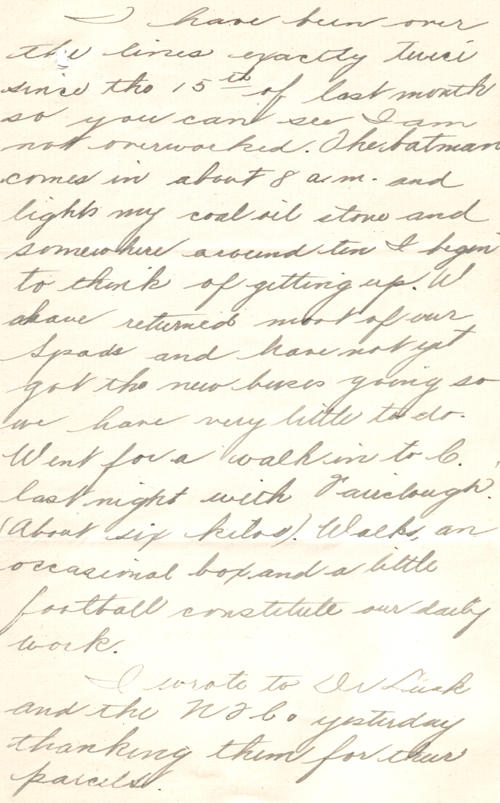 I have been over
the lines exactly twice
since the 15th of last month
so you can see I am
not overworked. The batman
comes in about 8 a.m. and
lights my coal oil stove and
somewhere around ten I begin
to think of getting up. We
have returned most of our
Spads and have not yet
got the new buses going so
we have very little to do.
Went for a walk in to C.
last night with Fairclough.
(About six kilos). Walks, an
occasional box and a little
football constitute our daily
work.
I wrote to Dr Lusk
and the N F Co yesterday
thanking them for their
parcels.